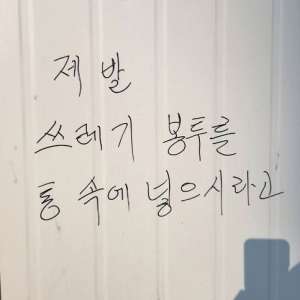 제발
쓰레기 봉투를
통 속에 넣으시라고